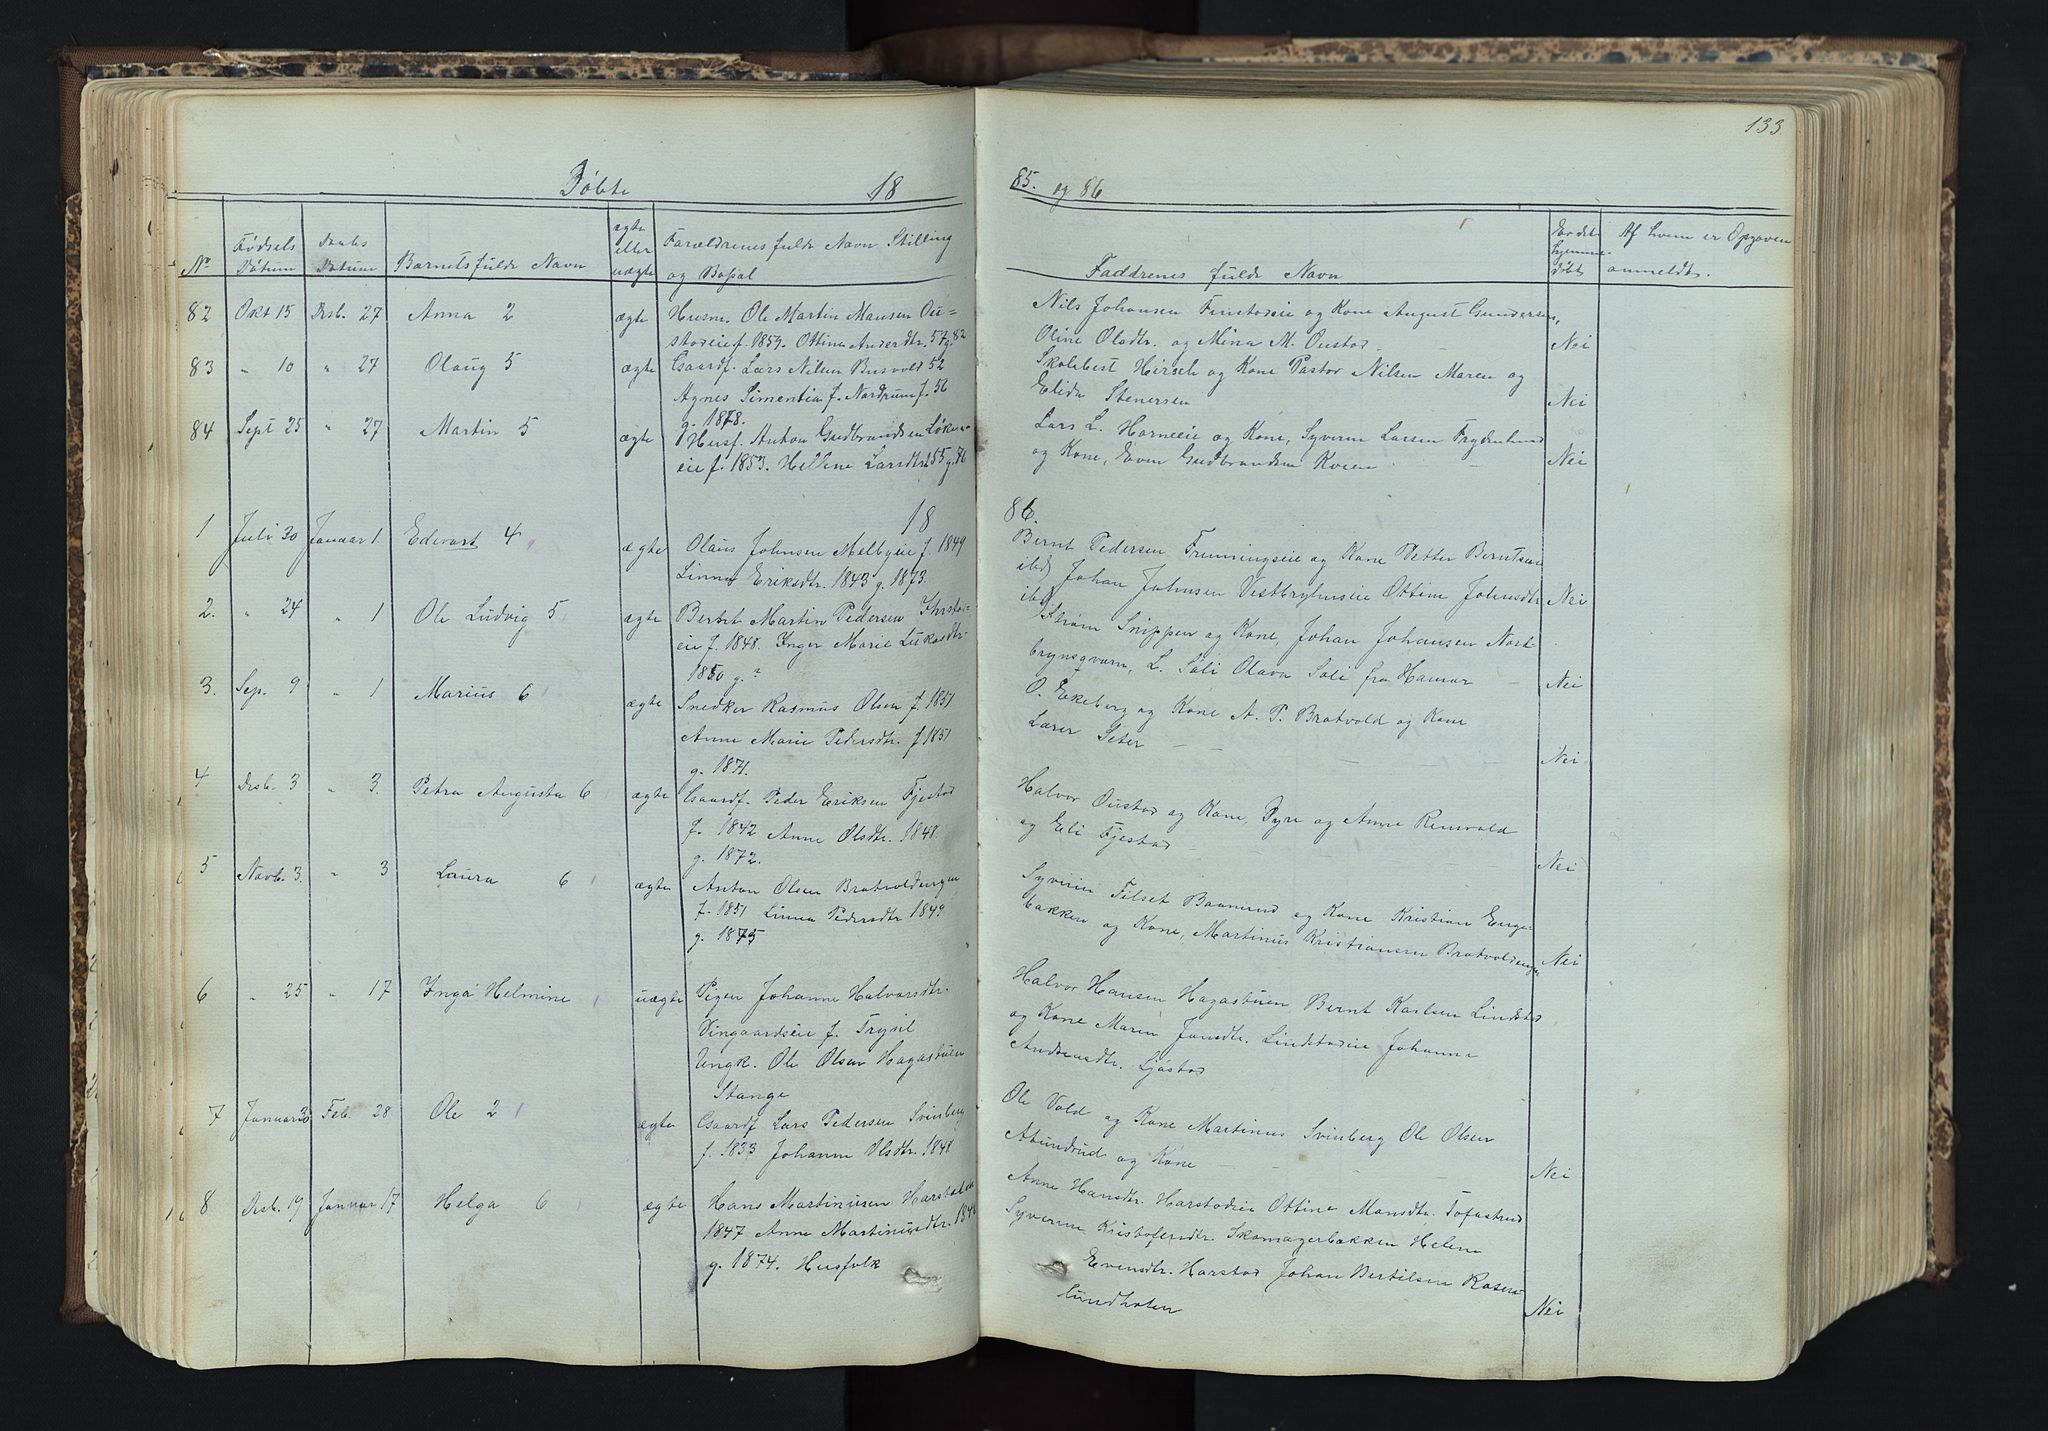 133
Döbte 18
85. og 86
No
Födsels Datum
Daabs Datum
Barnets fulde Navn
ægte eller uægte
Forældrenes fulde Navn Stilling
og Bopæl
Faddrenes fulde Navn
Er det hjemme-döbt
Af hvem er Opgaven
anmeldt.
82 Okt 15 Desb. 27 Anna 2 ægte Husm. Ole Martin Mansen Ou-
stadeie f. 1859. Ottine Andersdtr. 57 g. 82
Nils Johansen Finstadeie og Kone August Gundersen,
Oline Olsdtr. og Mina M. Oustad Nei
83 " 10 " 27 Olaug 5 ægte Gaardf. Lars Nilsen Busvold 52
Agnes Simentia f. Nordrum f. 56
g. 1878.
Skolebest Hirsch og Kone Pastor Nilsen Maren og
Elida Stenersen Nei
84 Sept 25 " 27 Martin 5 ægte Husf. Anton Gudbrandsen Löken-
eie f. 1853. Hellene Larsdtr. 55 g. 86
Lars L. Horneeie og Kone, Syveren Larsen Frydenlund
og Kone, Even Gudbrandsen Kveen Nei
18
86.
1 Juli 30 Januar 1. Edevart 4 ægte Olaus Johnsen Melbyeie f. 1849
Linna Eriksdtr. 1843 g. 1873.
Bernt Pedersen Fremmingseie og Kone Petter Berntsen
ibd, Johan Johnsen Vestbryhnseie Ottine Johnsdtr
ibd. Nei
2. " 24 " 1 Ole Ludvig 5 ægte Bernt Martin Pedersen
eie f. 1848. Inger Marie Lukasdtr.
1850 g. ?
Ström Snippen og Kone, Johan Johansen Nord
brynsqvern, L. Söli Olava Söli fra Hamar Nei
3. Sep. 9 " 1 Marius 6 ægte Snedker Rasmus Olsen f. 1851
Anne Marie Pedersdtr. f. 1851
g. 1871.
O. Ekeberg og Kone A. P. Bratvold og Kone
Lærer Seter Nei
4 Desb. 3 " 3. Petra Augusta 6 ægte Gaardf. Peder Eriksen Fjestad
f. 1842 Anne Olsdtr. 1848.
g. 1872.
Halvor Oustad og Kone, Syre og Anne Renvold
og Eli Fjestad Nei
5 Novb. 3. " 3 Laura 6 ægte Anton Olsen Bratvoldengen
f. 1851 Linna Pedersdtr 1849
g. 1875
Syverin Filset Baanrud og Kone Kristian Enge-
bakken og Kone, Martinus Kristiansen Bratvoldengen Nei
6 " 25 " 17 Inga Helmine uægte Pigen Johanne Halvorsdtr.
Vingaardseie f. Trysil
Ungk. Ole Olsen Hagastuen
Stange
Halvor Hansen Hagastuen Bernt Karlsen Lindstad
og Kone Maren Jonsdtr. Lindstadeie Johanne
Andreasdtr. Ljöstad
7 Januar 30 Feb. 28 Ole 2 ægte Gaardf Lars Pedersen Svinberg
f. 1833 Johanne Olsdtr. 1848
Ole Vold og Kone Martinus Svinberg Ole Olsen
Stundrud og Kone Nei
8 Desb. 19 Januar 17 Helga 6 ægte Hans Martinusen Harstadeie
1847 Anne Martinusdtr. 1848
g. 1874. Husfolk
Anne Hansdtr. Harstadeie Ottine Mansdtr. Tofastrud
Syverine Kristofersdtr. Skomagerbakken Helene
Evensdtr. Harstad Johan Bertilsen Rosen-
lundholen Nei